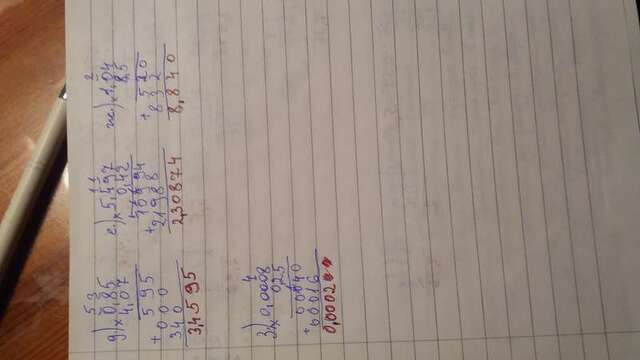 5 3
д.) 0,85
× 4,07
5 9 5
+ 0 0 0
3 4 0
3,4 5 9 5
1 1
е.) 5,497
× 0,42
1 1 1
1 0 9 9 4
+ 2 1 9 8 8
2,3 0 8 7 4
2
ж.) 1,04
× 8,5
+ 5 2 0
8 3 2
8,8 4 0
4
з.) 0,0008
× 0,25
0 0 0 4 0
+ 0 0 0 1 6
0,0 0 0 2 0 0